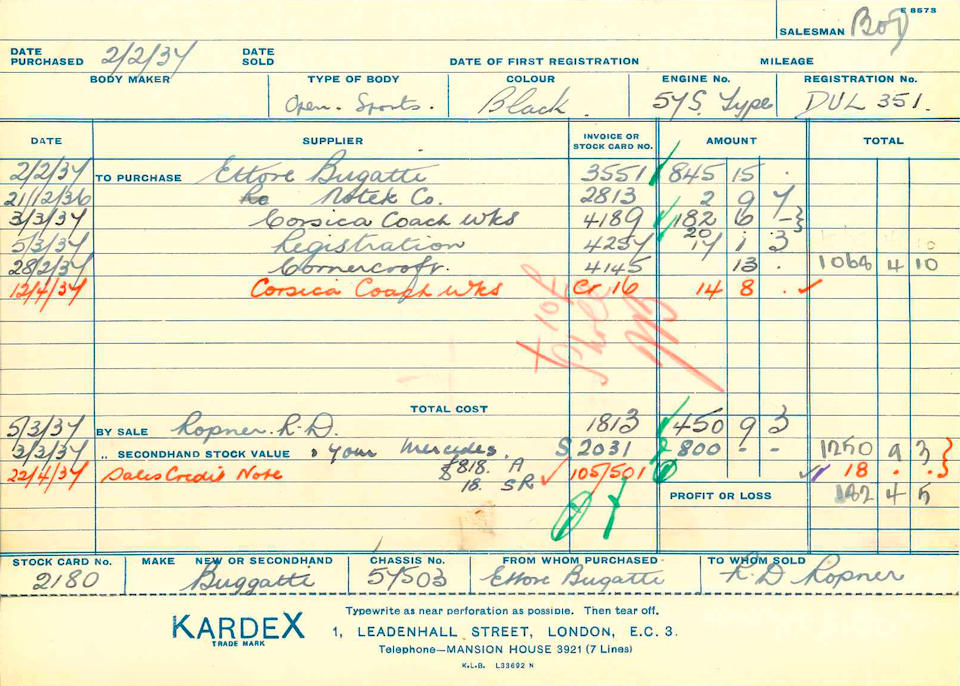 E 8573
SALESMAN Boy
DATE PURCHASED 2/2/37 DATE SOLD DATE OF FIRST REGISTRATION MILEAGE
BODY MAKER TYPE OF BODY COLOUR ENGINE No. REGISTRATION No.
Open. Sports. Black. 57S. Type DUL 351.
DATE SUPPLIER INVOICE OR STOCK CARD NO. AMOUNT TOTAL
2/2/37 TO PURCHASE Ettore Bugatti 3551 845 15 .
21/12/36 Notek Co. 2813 2 9 7
3/3/37 Corsica Coach Wks 4189 182 6 -
5/3/37 Registration 4257 20 17 1 3
28/2/37 Cornercroft. 4145 13 . 1068 4 10
12/4/37 Corsica Coach Wks Cr 16 14 8 .
TOTAL COST
5/3/37 BY SALE Ropner. R.D. 1813 450 9 3
3/3/37 " SECONDHAND STOCK VALUE " your Mercedes. S 2031 800 - - 1250 9 3
22/4/37 Sales Credit Note £818. A 105/501 18 . .
18 SR
PROFIT OR LOSS 182 4 5
STOCK CARD No. MAKE NEW OR SECONDHAND CHASSIS No. FROM WHOM PURCHASED TO WHOM SOLD
2180 Buggatti 57503 Ettore Bugatti R. D Ropner
Typewrite as near perforation as possible. Then tear off.
KARDEX 1, LEADENHALL STREET, LONDON, E.C. 3.
TRADE MARK
Telephone—MANSION HOUSE 3921 (7 Lines)
K.L.B. L33692 N